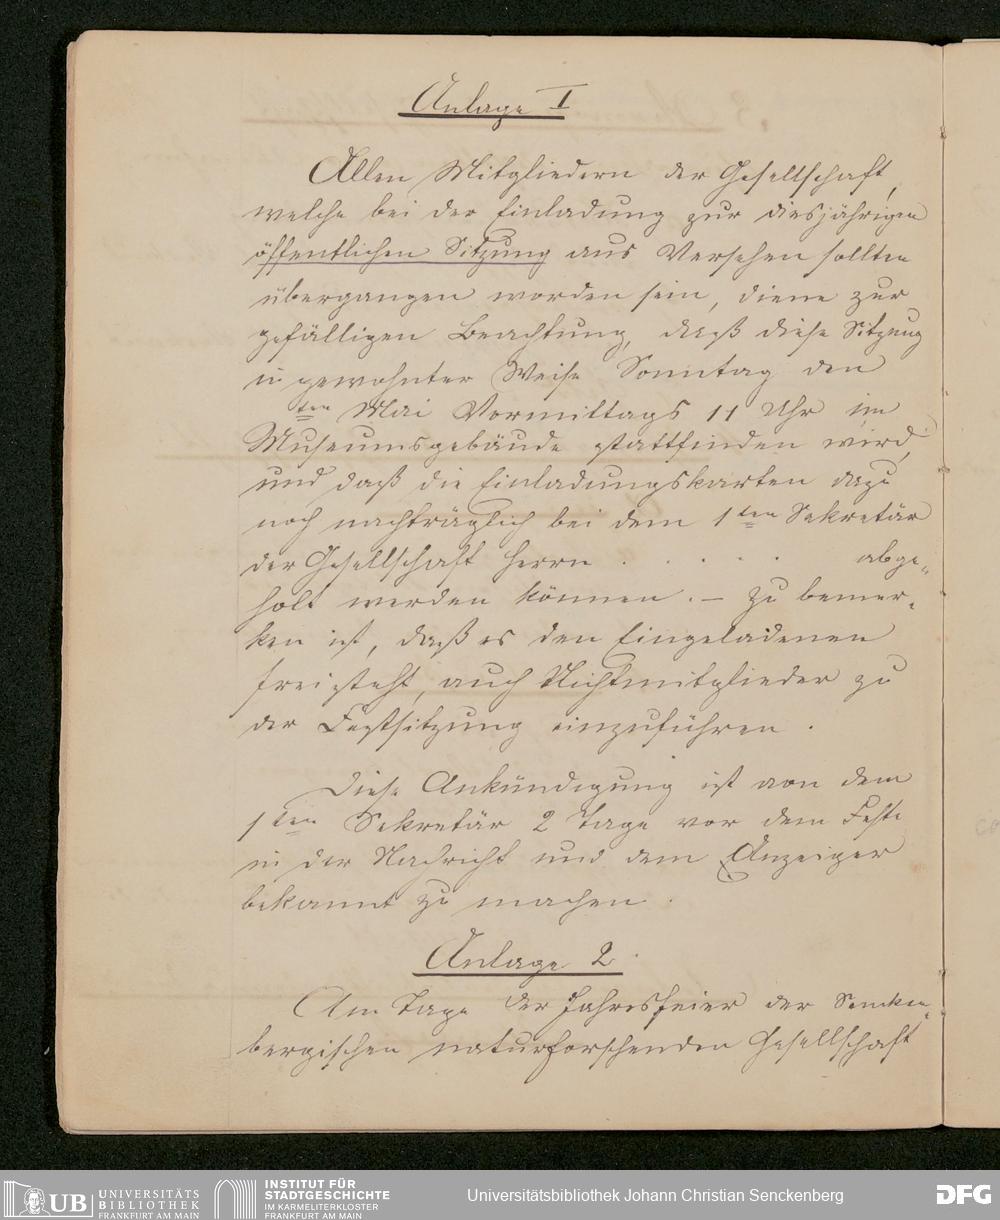 Anlage I
Allen Mitgliedern der Gesellschaft,
welche bei der Einladung zur diesjährigen
öffentlichen Sitzung aus Versehen sollten
übergangen worden sein, diene zur
gefälligen Beachtung, daß diese Sitzung
in gewohnter Weise Sonntag den
ten Mai Vormittags 11 Uhr im
Museumsgebäude stattfinden wird,
und daß die Einladungskarten dazu
noch nachträglich bei dem 1ten Sekretär
der Gesellschaft Herrn . . . . . abge„
holt werden können. – Zu bemer„
ken ist, daß es den Eingeladenen
freisteht, auch Nichtmitglieder zu
der Festsitzung einzuführen.
Diese Ankündigung ist von dem
1ten Sekretär 2 Tage vor dem Feste
in der Nachricht und dem Anzeiger
bekannt zu machen.
Anlage 2.
Am Tage der Jahresfeier der Sencken„
bergischen naturforschenden Gesellschaft
UB UNIVERSITÄTS
BIBLIOTHEK
FRANKFURT AM MAIN
INSTITUT FÜR
STADTGESCHICHTE
IM KARMELITERKLOSTER
FRANKFURT AM MAIN
Universitätsbibliothek Johann Christian Senckenberg
DFG